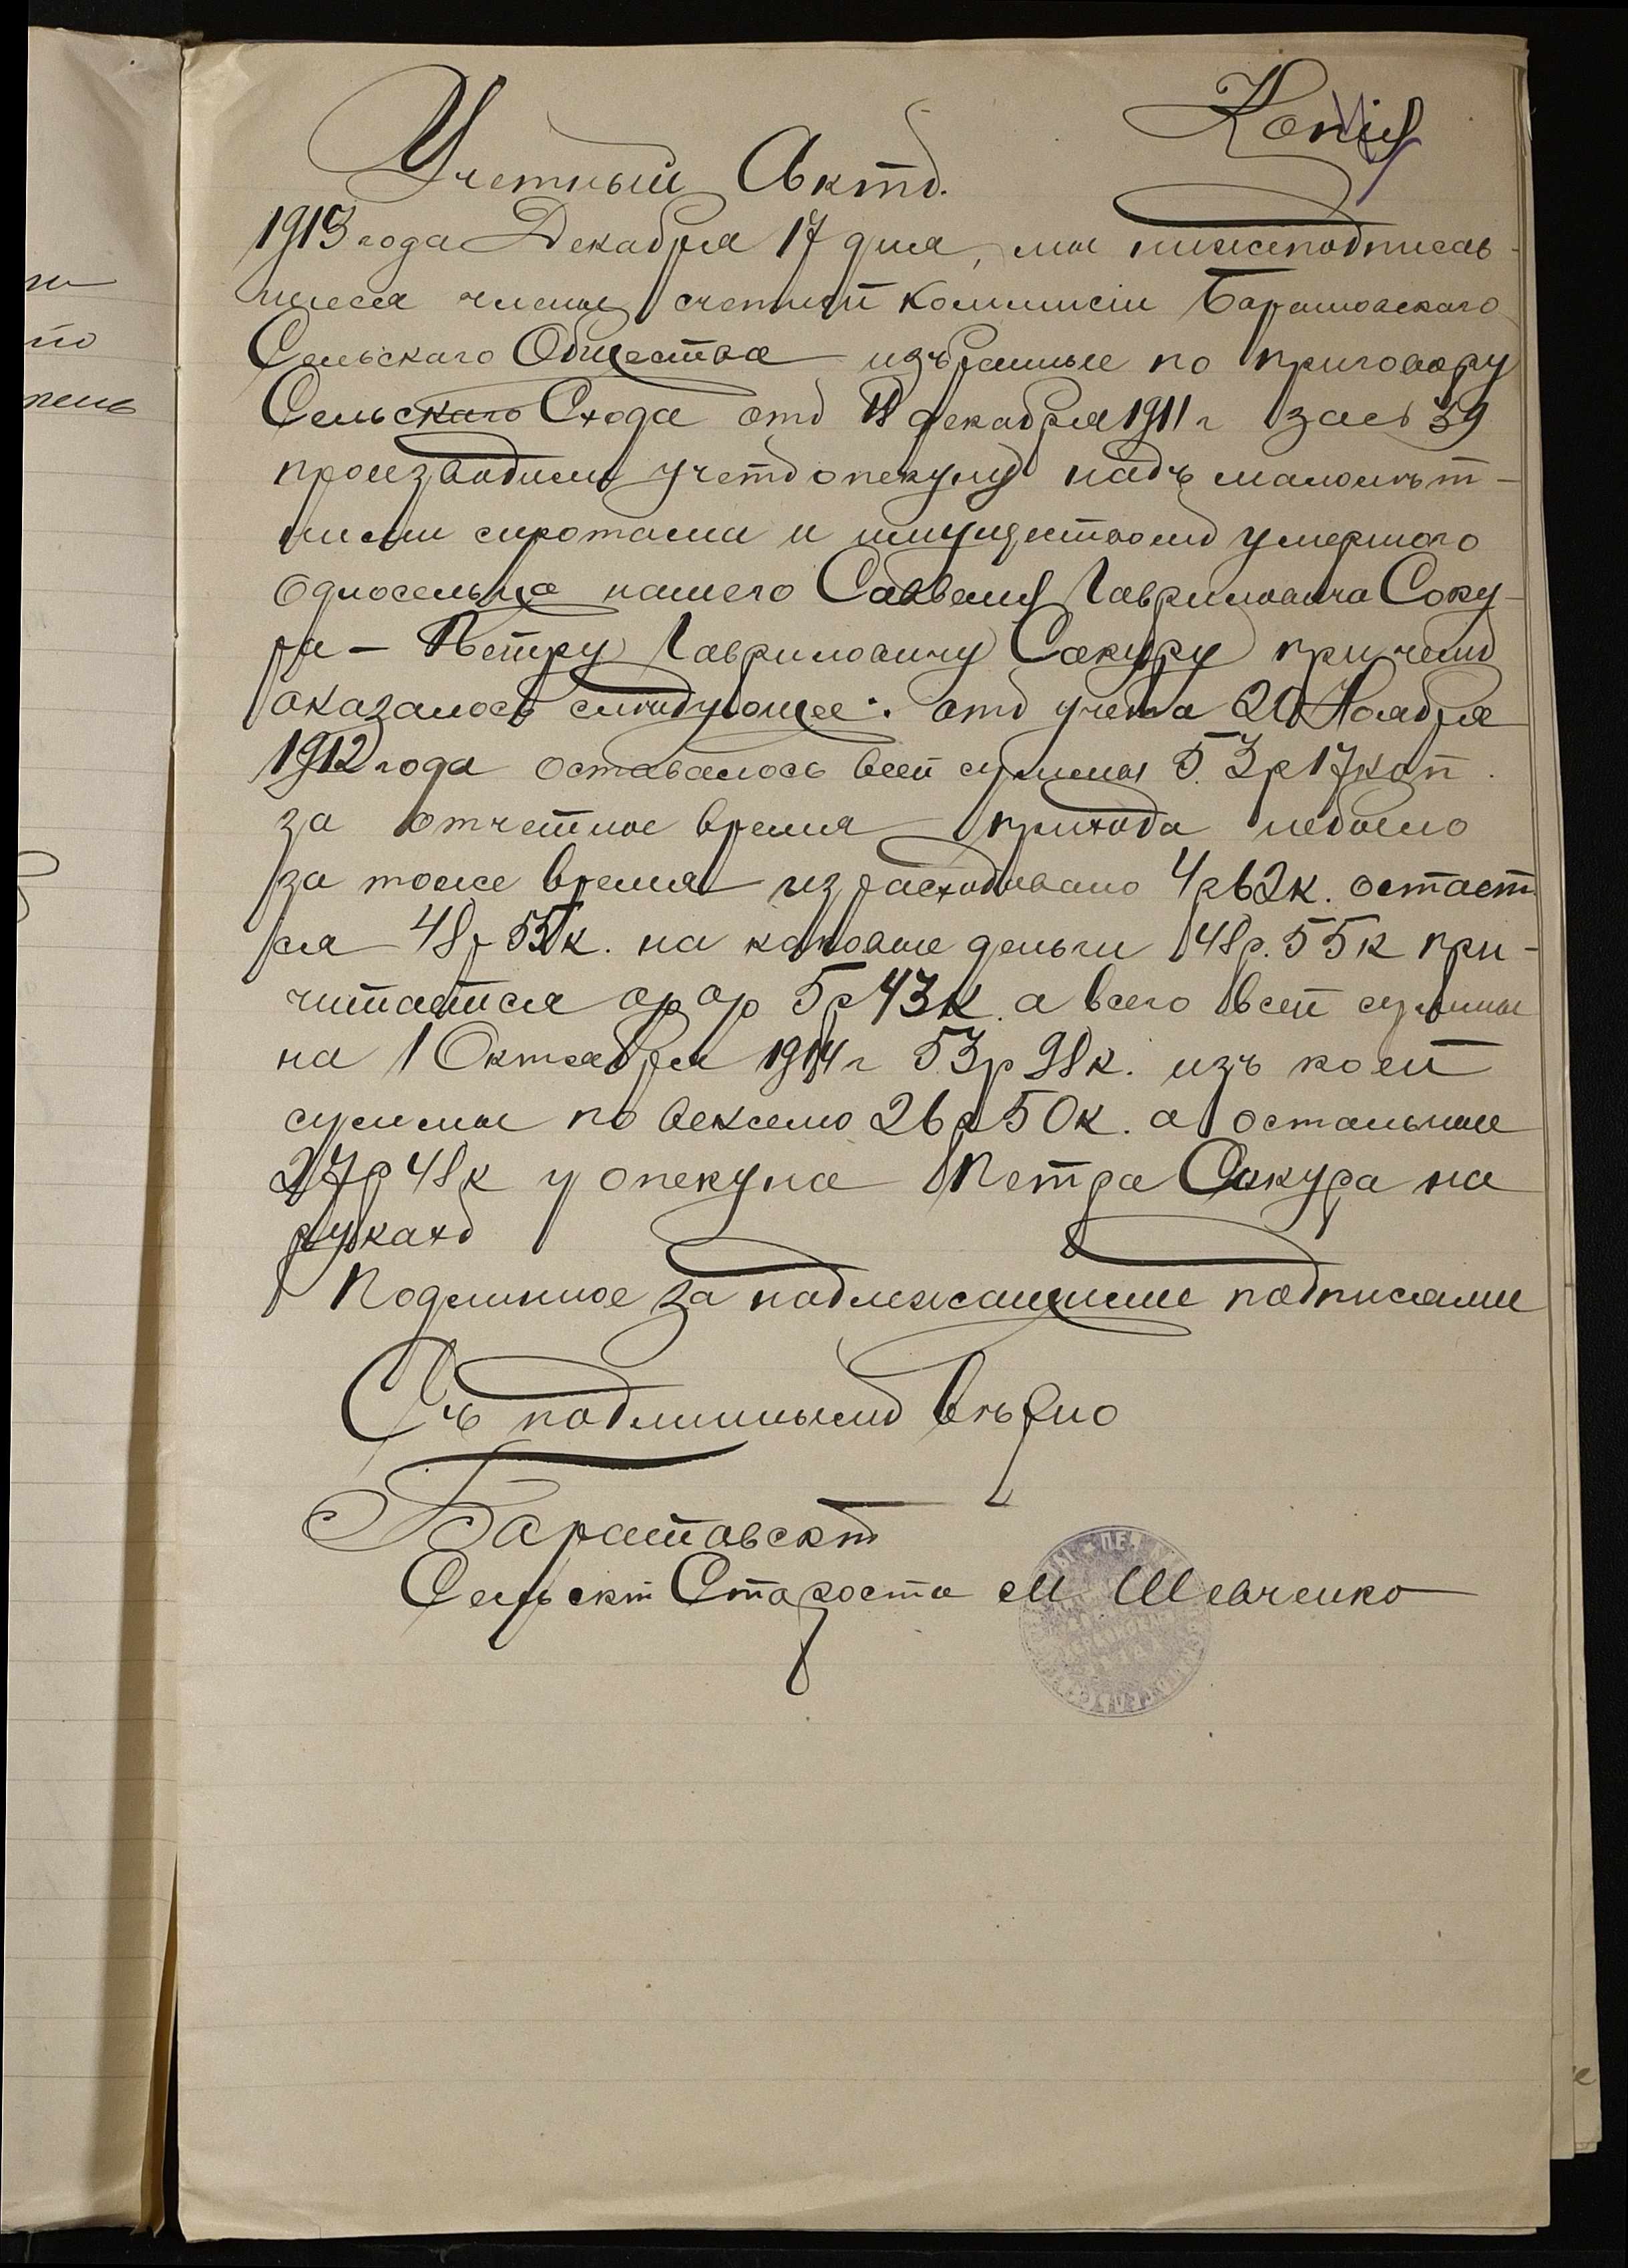 Копія
Учетный Актъ.
1913 года Декабря 17 дня, мы нижеподписав-
шиеся члены счетной Коммисіи Баратовскаго
Сельскаго Общества избранные по приговору
Сельскаго Схода отъ 18 декабря 1911 г за № 39
производили учетъ опекуну надъ малолѣт-
ними сиротами и имуществомъ умершого
односельца нашего Савелія Гавриловича Соку-
ра – Петру Гавриловичу Сокуру причемъ
оказалось слѣдующее: отъ учета 20 Ноября
1912 года оставалось всей суммы 53 р 17 коп.
за отчетное время прихода небыло
за тоже время израсходовано 4 р 62 к. остает
ся 48 р 55 к. на каковые деньги 48 р. 55 к при-
читается 5 р 43 к. а всего всей суммы
на 1 Октября 1914 г 53 р 98 к. изъ коей
суммы по векселю 26 р 50 к. а остальные
27 р 48 к у опекуна Петра Сокура на
рукахъ
Подлинное за надлежащими подписями
Съ подлиннымъ вѣрно
Баратовскій
Сельскій Староста М Шевченко